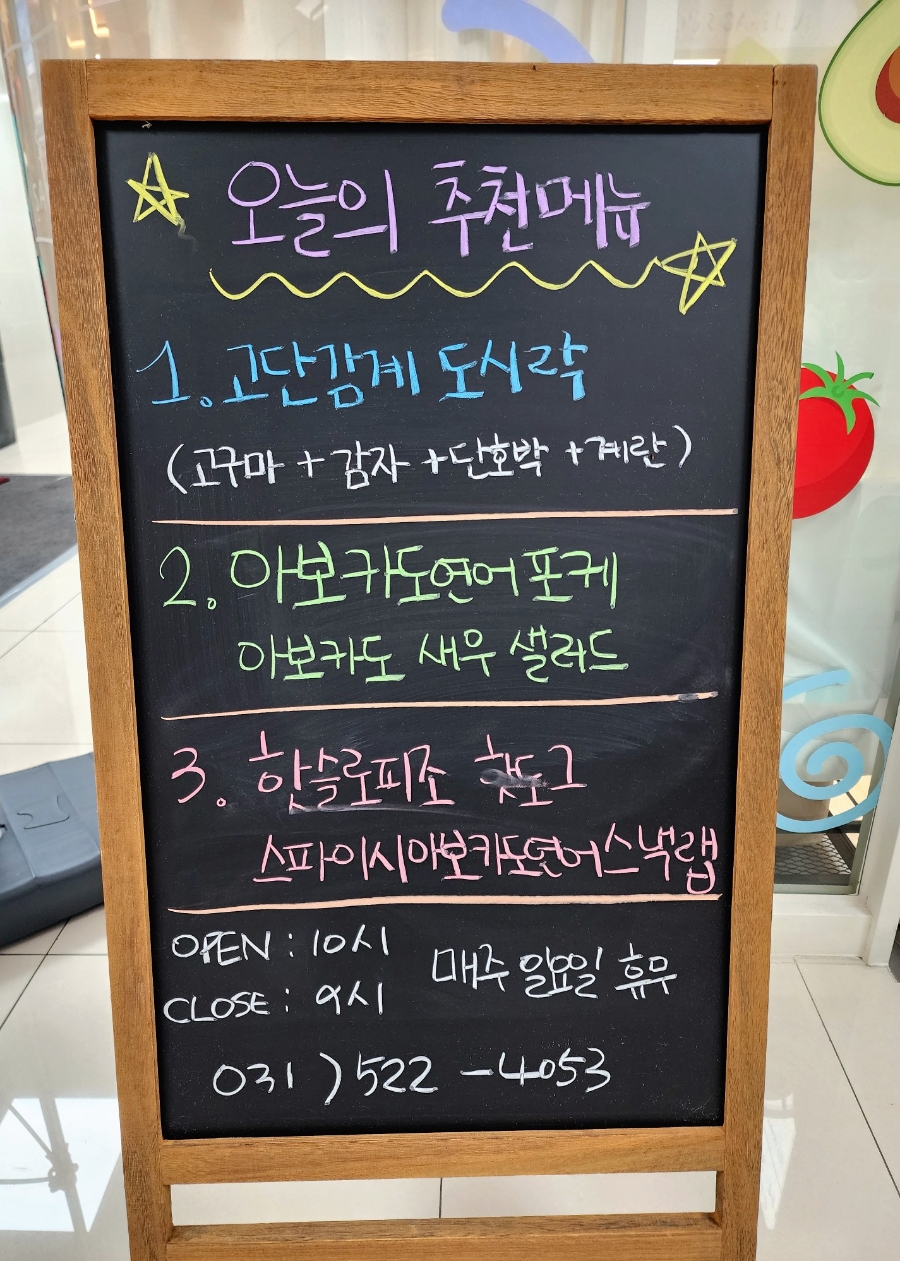 오늘의 추천메뉴
1. 고단감계 도시락
(고구마 + 감자 + 단호박 + 계란)
2. 아보카도연어포케
아보카도 새우 샐러드
3. 핫슬로피조 핫도그
스파이시아보카도연어스낵랩
OPEN : 10시
CLOSE : 9시
매주 일요일 휴무
031 ) 522 - 4053